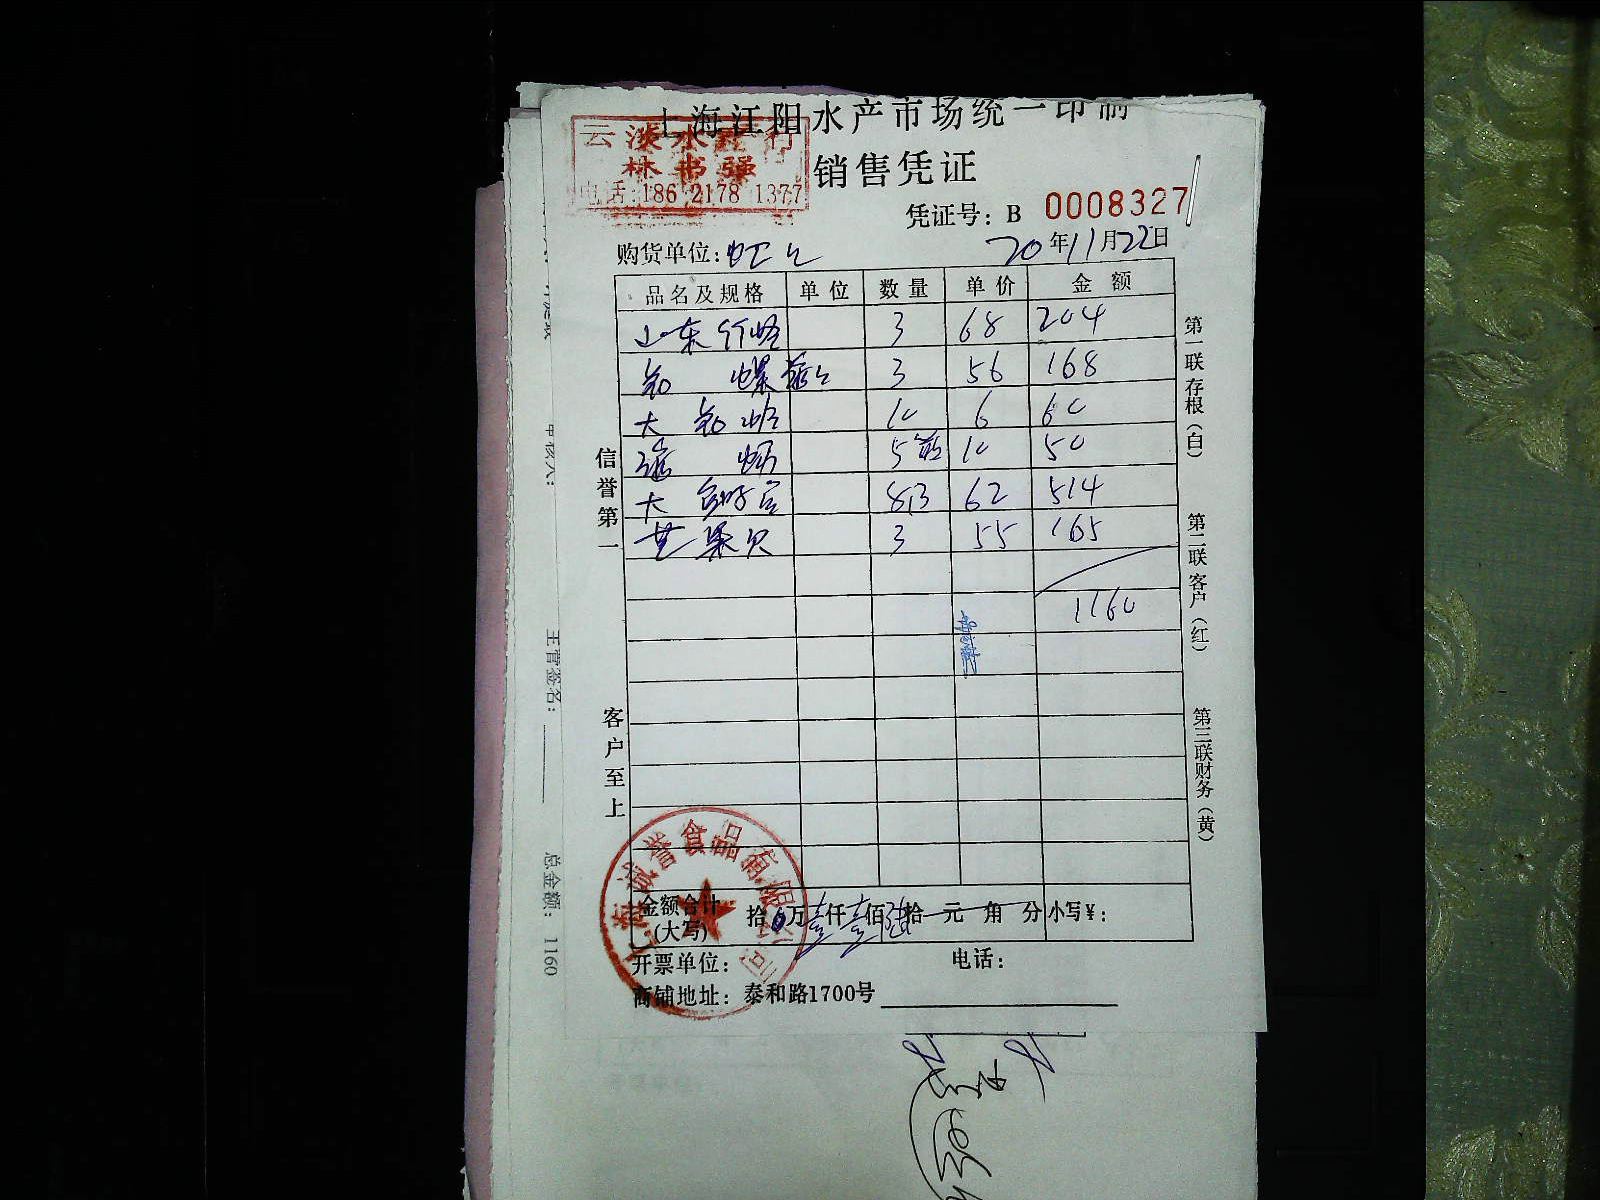 上海江阳水产市场统一印制
云淡水产行
林书强
电话:186 2178 1377
销售凭证
凭证号: B 0008327
20年11月22日
购货单位:虹上
品名及规格 单位 数量 单价 金额
山东竹蛏 3 68 204
3 56 168
大 6 60
5 10 50
大 8.3 62 514
3 55 165
1160
信誉第一
客户至上
第一联存根(白)
第二联客户(红)
第三联财务(黄)
金额合计(大写) 拾0万壹仟壹佰陆拾元角分 小写¥:
开票单位: 电话:
商铺地址: 泰和路1700号
上海诚誉食品有限公司
审核人:
主管签名:
总金额: 1160